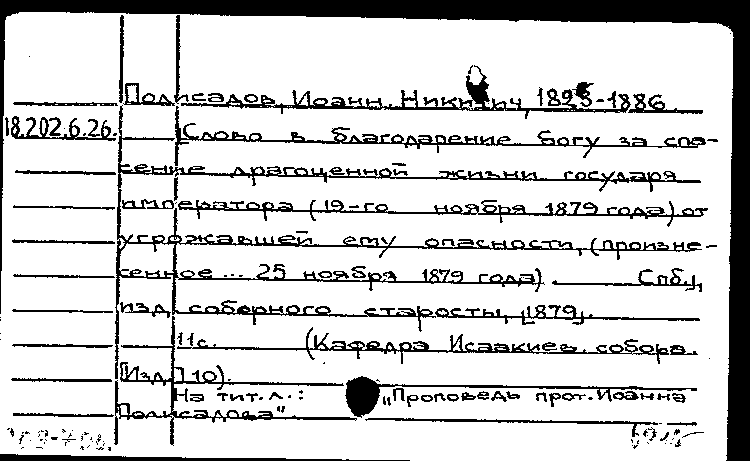 Полисадов, Иоанн Никитич, 1823-1886.
18.202.6.26. [Слово в благодарение Богу за спа-
сение драгоценной жизни государя
императора (19-го ноября 1879 года) от
угрожавшей ему опасности, (произне-
сенное ... 25 ноября 1879 года). Спб.,
изд. соборного старосты, [1879].
11с. (Кафедра Исаакиев. собора.
[Изд.] 10).
На тит.л.: „Проповедь прот. Иоанна
Полисадова".